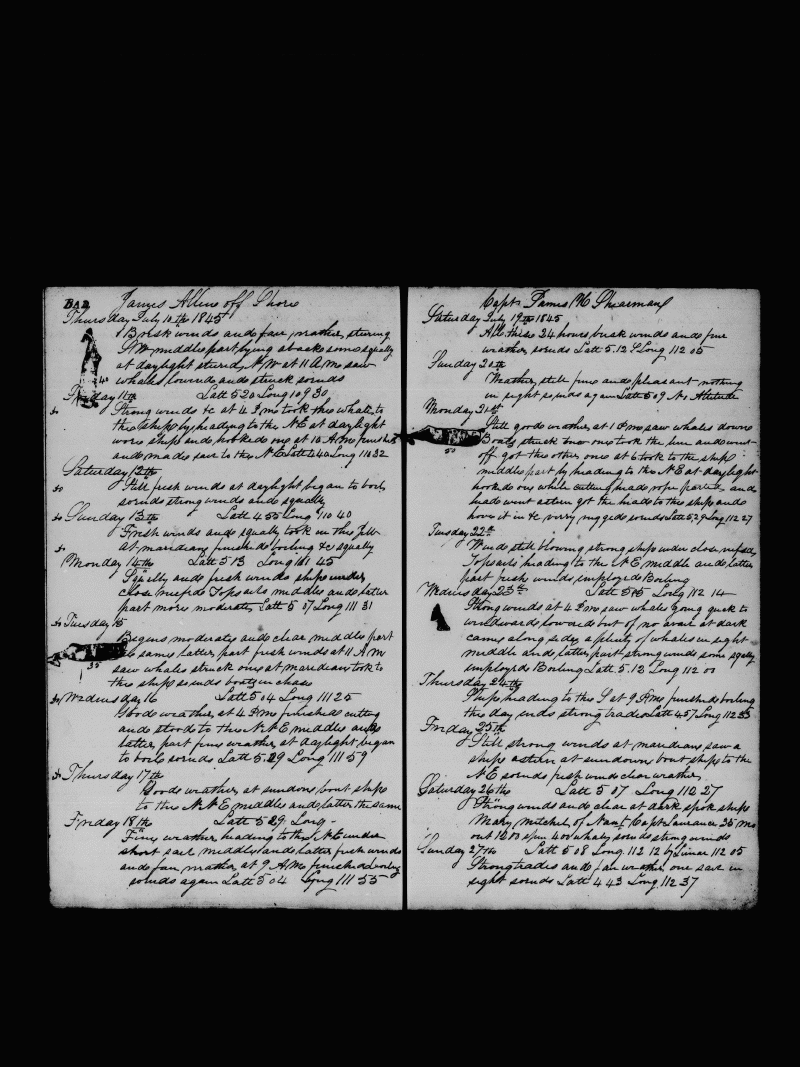 James Allen off Shore
Thursday July 10th 1845
Brisk winds and fair weather, stering
S W middle part lying aback some squally
at daylight sturd N W at 11 A M saw
40 whales lowered and struck so ends
Friday 11th Latt 5 20 Long 109 30
Strong winds &c at 4 P m took the whale to
the ship by heading to the N E at daylight
wore ship and hooked one at 10 A M finished
and made sail to the N E Latt 4 40 Long 110 32
Saturday 12th
Still fresh winds at daylight began to boil
so ends strong winds and squally
Sunday 13th Latt 4 55 Long 110 40
Fresh winds and squally took in the jibb
at maridian finished boiling &c squally
Monday 14th Latt 5 13 Long 111 45
Squally and fresh winds ship under
close reefed Topsails middle and latter
part more moderate Latt 5 07 Long 111 31
Tuesday 15
Begins moderate and clear middle part
the same latter part fresh winds at 11 A M
35 saw whales struck one at maridian took to
the ship so ends boats in chase
Wednesday 16 Latt 5 04 Long 111 25
Good weather at 4 P m finished cutting
and stood to the N N E middle and
latter part fine weather at daylight began
to boil so ends Latt 5.29 Long 111 59
Thursday 17th
Good weather at sundown bout ship
to the N N E middle and latter the same
Friday 18th Latt 5 29 Long -
Fine weather heading to the N E under
short sail middle and latter fresh winds
and fair weather at 9 A M finished boiling
so ends again Latt 5 04 Long 111 55
Capt James H Shearman
Saturday July 19th 1845
All these 24 hours brisk winds and fine
weather so ends Latt 5.12 S Long 112 05
Sunday 20th
Weather still fine and pleasant nothing
in sight so ends again Latt 5 09 No Altitude
Monday 21th
Still good weather at 1 P m saw whales down
50 Boats struck one took the line and went
off got the other one at 6 took to the ship
middle part by heading to the N E at daylight
hooked one while cutting head rope parted and
head went astern got the head to the ship and
hove it in &c very rugged so ends Latt 5.29 Long 112 27
Tuesday 22th
Winds still blowing strong ship under close reefed
Topsails heading to the N E middle and latter
part fresh winds imployed Boiling
Wednesday 23th Latt 5 15 Long 112 14
Strong winds at 4 P m saw whales going quick to
windward lowered but of no avail at dark
came along side a plenty of whales in sight
middle and latter part strong winds some squally
imployed Boiling Latt 5.12 Long 112 00
Thursday 24th
Ship heading to the S at 9 A m finished boiling
this day ends strong trades Latt 4 57 Long 112 35
Friday 25th
Still strong winds at maridian saw a
ship astern at sundown bout ship to the
N E so ends fresh winds clear weather
Saturday 26th Latt 5 07 Long 112 27
Strong winds and clear at dark spok ship
Mary mitchel of Nant Capt Lawrance 35 mo
out 1200 spm 400 whale so ends strong winds
Sunday 27th Latt 5 08 Long. 112 12 by Lunar 112 05
Strong trades and fair weather one sail in
sight so ends Latt 4 43 Long 112 37